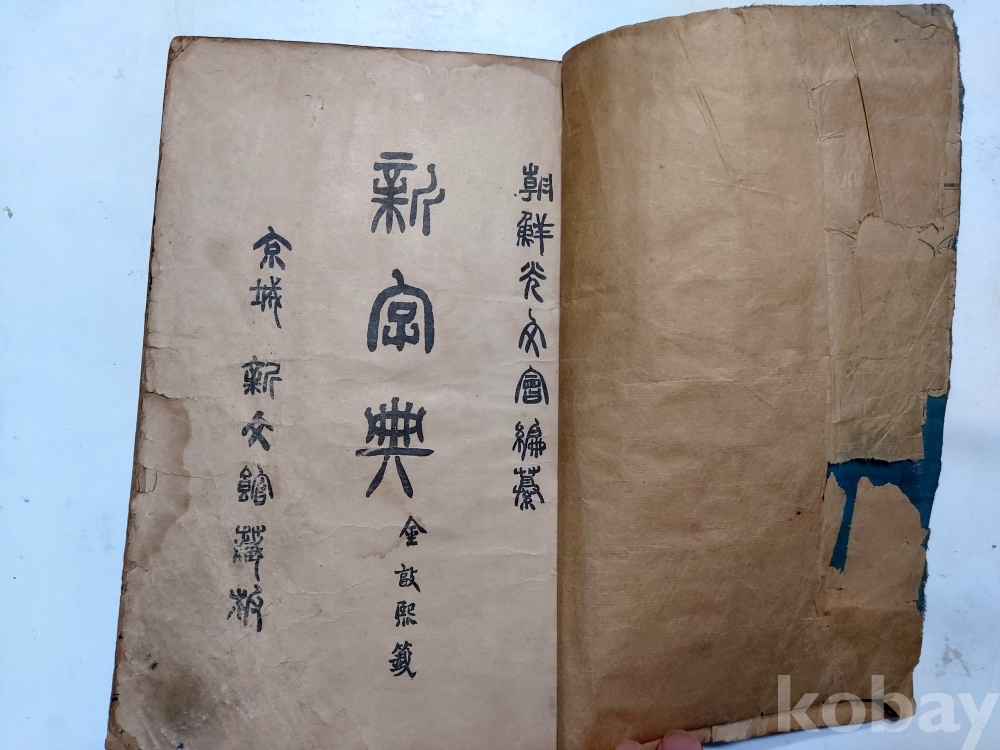 朝鮮光文會編纂
新字典
金敦熙籤
京城 新文館藏板
kobay